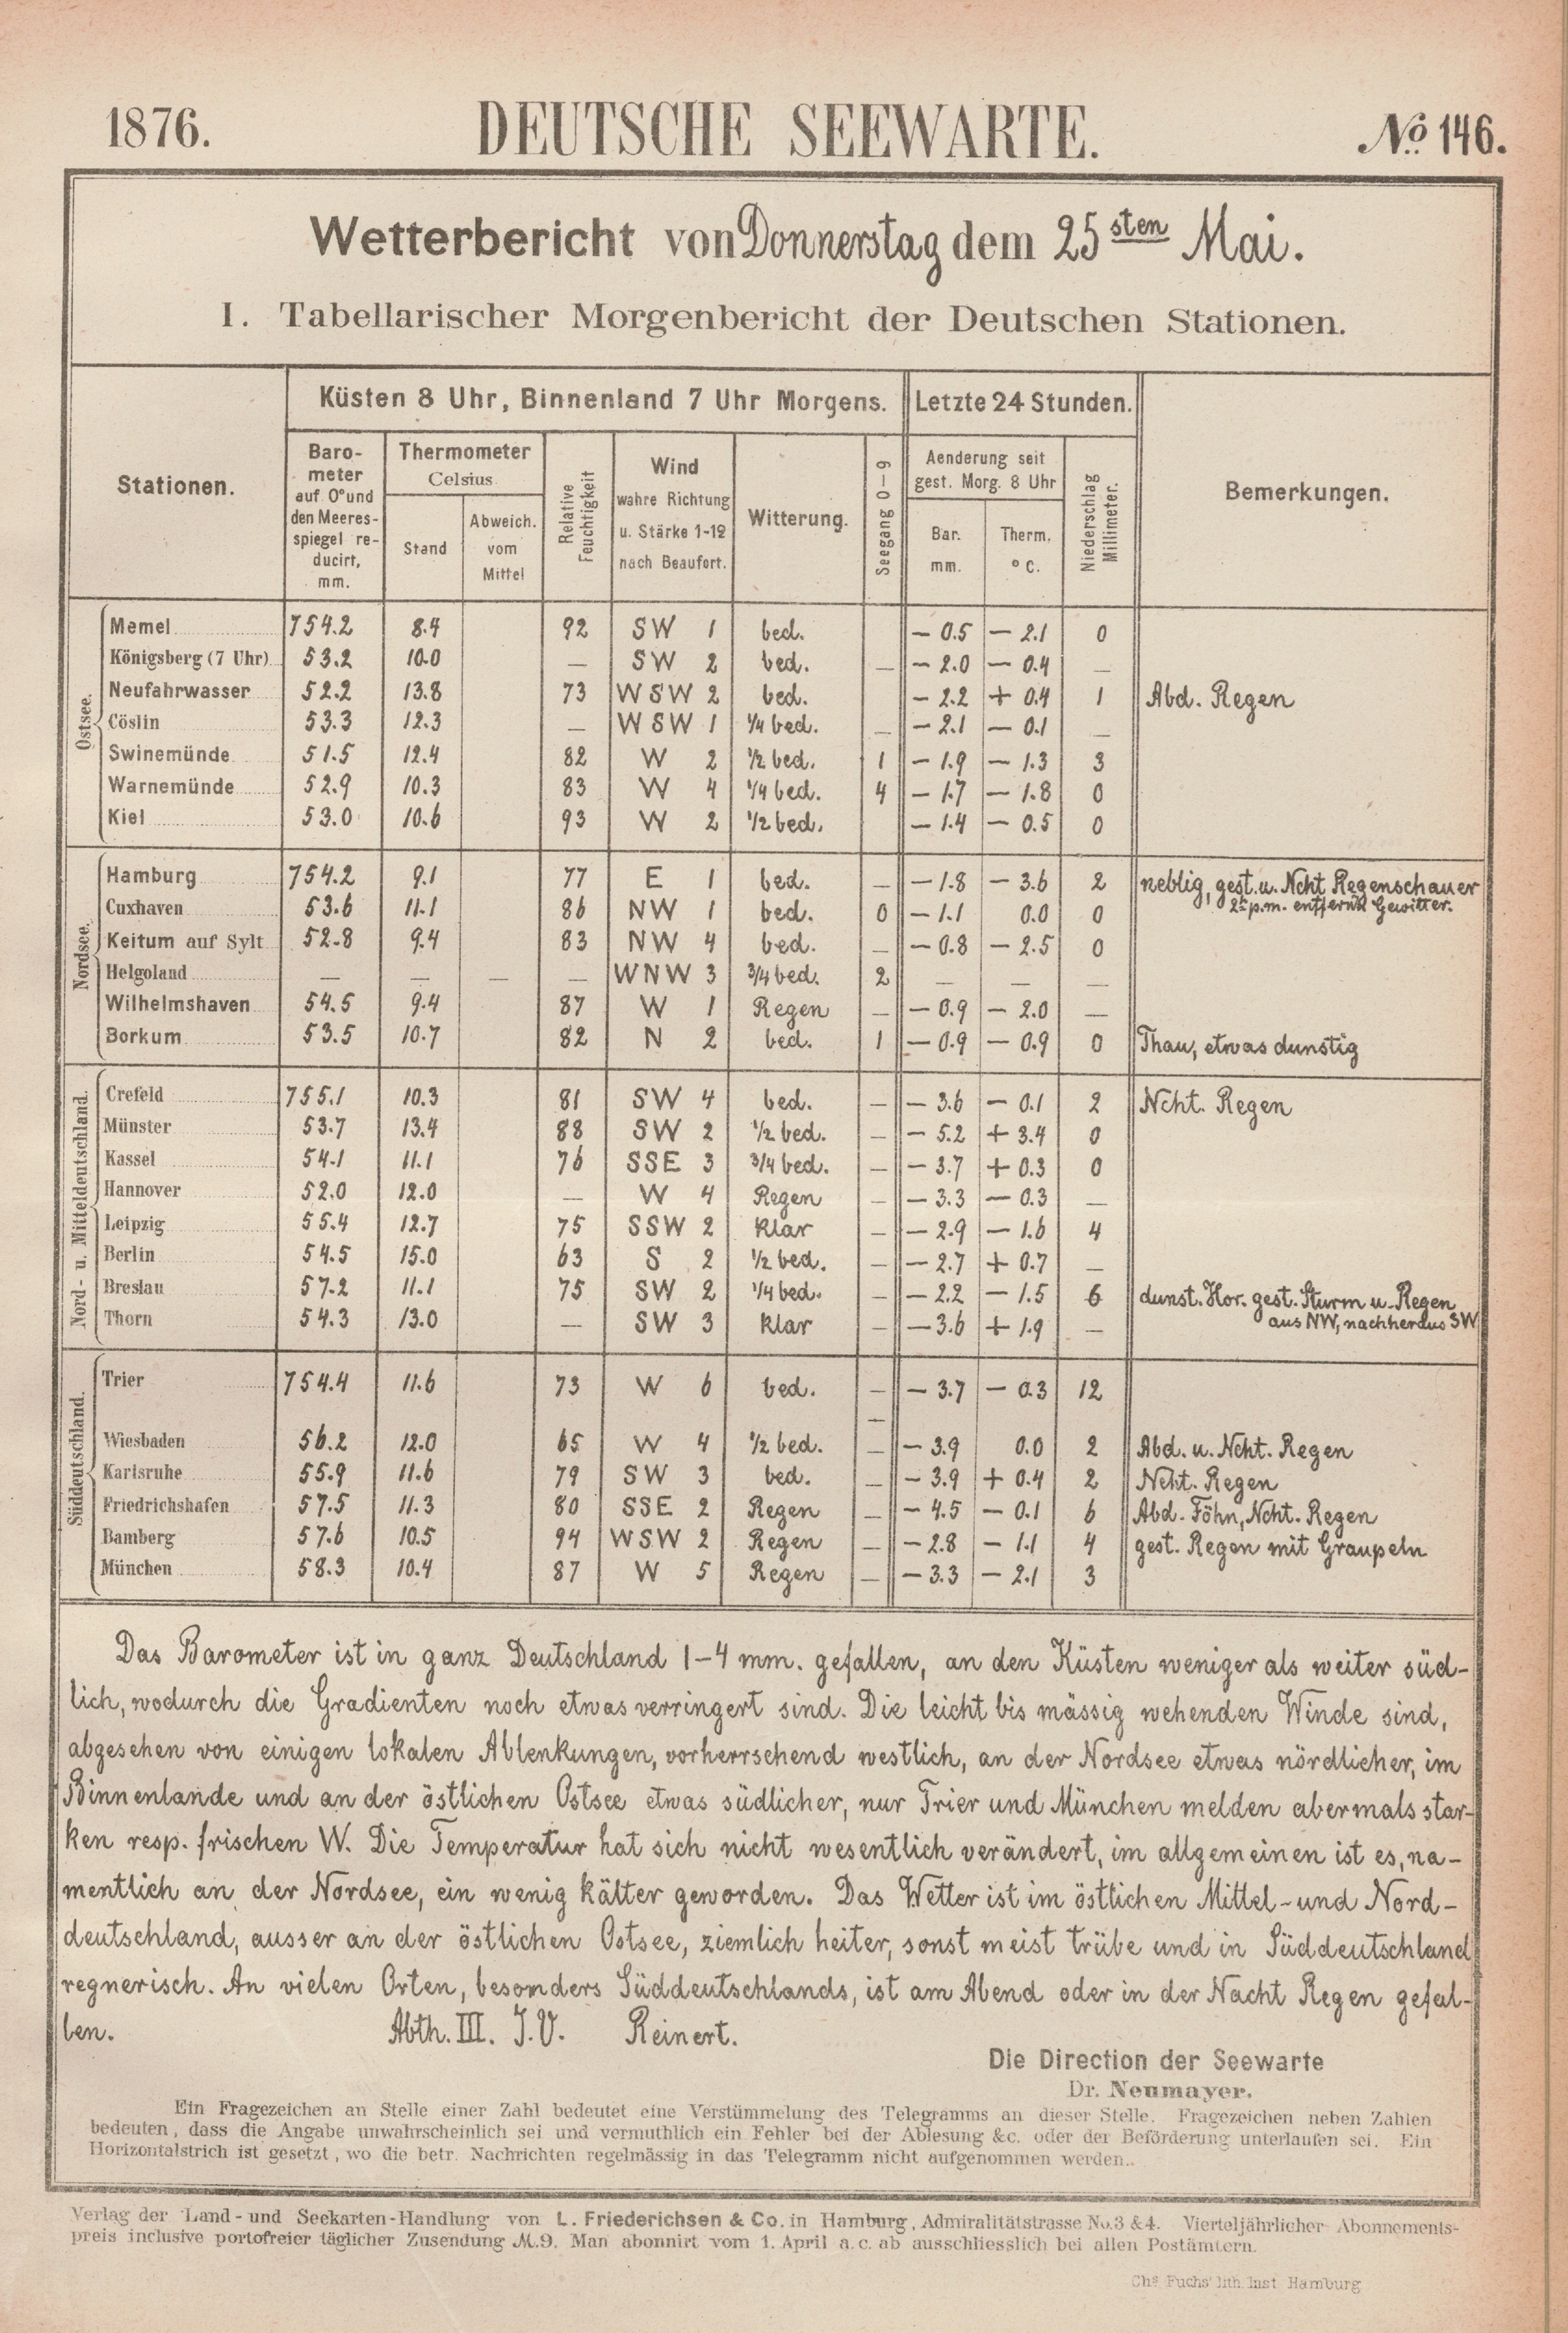 1876. DEUTSCHE SEEWARTE. No 146.
Wetterbericht von Donnerstag dem 25sten Mai.
I. Tabellarischer Morgenbericht der Deutschen Stationen.
Stationen. Küsten 8 Uhr, Binnenland 7 Uhr Morgens. Letzte 24 Stunden. Bemerkungen.
Barometer auf 0° und den Meeresspiegel reducirt, mm.
Thermometer Celsius
Stand
Abweich. vom Mittel
Relative Feuchtigkeit
Wind wahre Richtung u. Stärke 1-12 nach Beaufort.
Witterung.
Seegang 0-9
Aenderung seit gest. Morg. 8 Uhr
Bar. mm.
Therm. ° C.
Niederschlag Millimeter.
Ostsee.
Memel 754.2 8.4 92 SW 1 bed. – 0.5 – 2.1 0
Königsberg (7 Uhr) 53.2 10.0 – SW 2 bed. – – 2.0 – 0.4 –
Neufahrwasser 52.2 13.8 73 WSW 2 bed. – 2.2 + 0.4 1 Abd. Regen
Cöslin 53.3 12.3 – WSW 1 1/4 bed. – – 2.1 – 0.1 –
Swinemünde 51.5 12.4 82 W 2 1/2 bed. 1 – 1.9 – 1.3 3
Warnemünde 52.9 10.3 83 W 4 1/4 bed. 4 – 1.7 – 1.8 0
Kiel 53.0 10.6 93 W 2 1/2 bed. – 1.4 – 0.5 0
Nordsee.
Hamburg 754.2 9.1 77 E 1 bed. – – 1.8 – 3.6 2 neblig, gest. u. Ncht Regenschauer
2h p.m. entfernt Gewitter.
Cuxhaven 53.6 11.1 86 NW 1 bed. 0 – 1.1 0.0 0
Keitum auf Sylt 52.8 9.4 83 NW 4 bed. – – 0.8 – 2.5 0
Helgoland – – – – WNW 3 3/4 bed. 2 – – –
Wilhelmshaven 54.5 9.4 87 W 1 Regen – – 0.9 – 2.0 –
Borkum 53.5 10.7 82 N 2 bed. 1 – 0.9 – 0.9 0 Thau, etwas dunstig
Nord- u. Mitteldeutschland.
Crefeld 755.1 10.3 81 SW 4 bed. – – 3.6 – 0.1 2 Ncht. Regen
Münster 53.7 13.4 88 SW 2 1/2 bed. – – 5.2 + 3.4 0
Kassel 54.1 11.1 76 SSE 3 3/4 bed. – – 3.7 + 0.3 0
Hannover 52.0 12.0 – W 4 Regen – – 3.3 – 0.3 –
Leipzig 55.4 12.7 75 SSW 2 klar – – 2.9 – 1.6 4
Berlin 54.5 15.0 63 S 2 1/2 bed. – – 2.7 + 0.7 –
Breslau 57.2 11.1 75 SW 2 1/4 bed. – – 2.2 – 1.5 6 dunst. Hor. gest. Sturm u. Regen
aus NW, nachher aus SW
Thorn 54.3 13.0 – SW 3 klar – – 3.6 + 1.9 –
Süddeutschland.
Trier 754.4 11.6 73 W 6 bed. – – 3.7 – 0.3 12
–
Wiesbaden 56.2 12.0 65 W 4 1/2 bed. – – 3.9 0.0 2 Abd. u. Ncht. Regen
Karlsruhe 55.9 11.6 79 SW 3 bed. – – 3.9 + 0.4 2 Ncht. Regen
Friedrichshafen 57.5 11.3 80 SSE 2 Regen – – 4.5 – 0.1 6 Abd. Föhn, Ncht. Regen
Bamberg 57.6 10.5 94 WSW 2 Regen – – 2.8 – 1.1 4 gest. Regen mit Graupeln
München 58.3 10.4 87 W 5 Regen – – 3.3 – 2.1 3
Das Barometer ist in ganz Deutschland 1–4 mm. gefallen, an den Küsten weniger als weiter süd-
lich, wodurch die Gradienten noch etwas verringert sind. Die leicht bis mässig wehenden Winde sind,
abgesehen von einigen lokalen Ablenkungen, vorherrschend westlich, an der Nordsee etwas nördlicher, im
Binnenlande und an der östlichen Ostsee etwas südlicher, nur Trier und München melden abermals star-
ken resp. frischen W. Die Temperatur hat sich nicht wesentlich verändert, im allgemeinen ist es, na-
mentlich an der Nordsee, ein wenig kälter geworden. Das Wetter ist im östlichen Mittel- und Nord-
deutschland, ausser an der östlichen Ostsee, ziemlich heiter, sonst meist trübe und in Süddeutschland
regnerisch. An vielen Orten, besonders Süddeutschlands, ist am Abend oder in der Nacht Regen gefal-
len. Abth. III. J.V. Reinert.
Die Direction der Seewarte
Dr. Neumayer.
Ein Fragezeichen an Stelle einer Zahl bedeutet eine Verstümmelung des Telegramms an dieser Stelle. Fragezeichen neben Zahlen
bedeuten, dass die Angabe unwahrscheinlich sei und vermuthlich ein Fehler bei der Ablesung &c. oder der Beförderung unterlaufen sei. Ein
Horizontalstrich ist gesetzt, wo die betr. Nachrichten regelmässig in das Telegramm nicht aufgenommen werden..
Verlag der Land- und Seekarten-Handlung von L. Friederichsen & Co. in Hamburg, Admiralitätstrasse No. 3 & 4. Vierteljährlicher Abonnements-
preis inclusive portofreier täglicher Zusendung M. 9. Man abonnirt vom 1. April a. c. ab ausschliesslich bei allen Postämtern.
Chs Fuchs' lith. Inst Hamburg